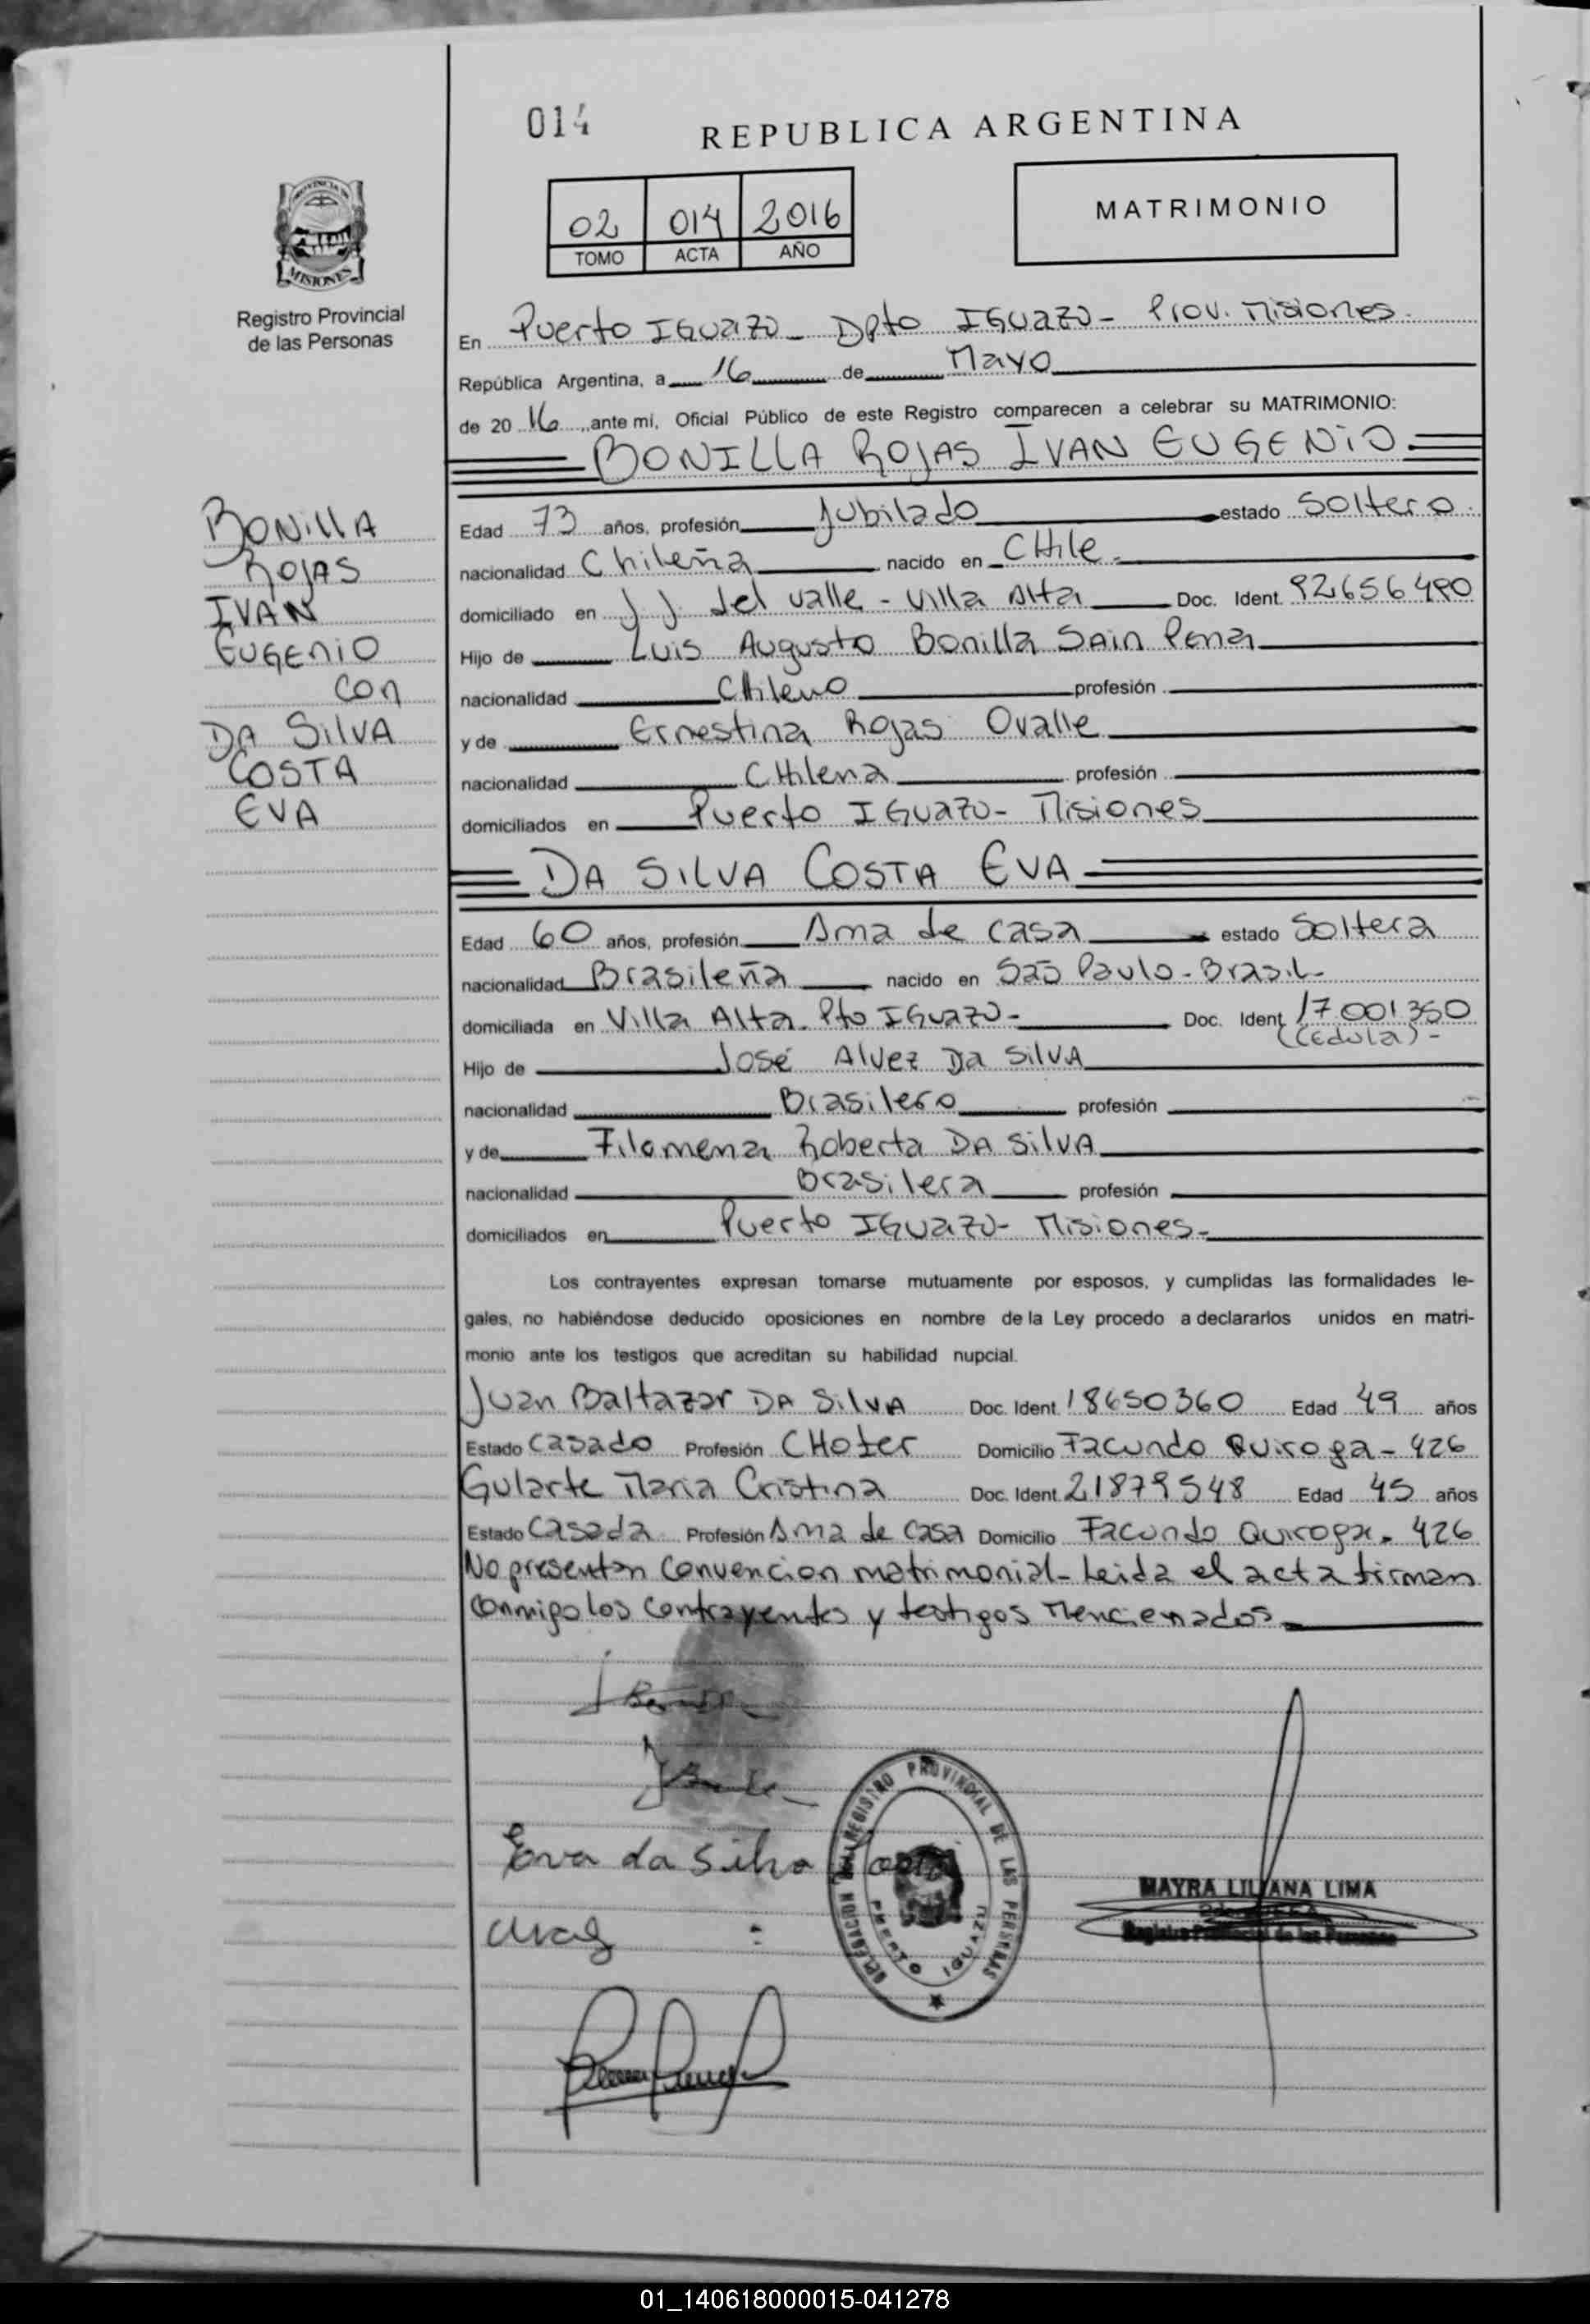 014
REPUBLICA ARGENTINA
02 014 2016
TOMO ACTA AÑO
MATRIMONIO
PROVINCIA DE
MISIONES
Registro Provincial
de las Personas
En Puerto IGuazu - Dpto IGuazu - Prov. Misiones.
República Argentina, a 16 de Mayo
de 20 16 ,ante mi, Oficial Público de este Registro comparecen a celebrar su MATRIMONIO:
BONILLA ROJAS IVAN EUGENIO
BONILLA
ROJAS
IVAN
EUGENIO
con
DA SILVA
COSTA
EVA
Edad 73 años, profesión Jubilado estado Soltero.
nacionalidad Chileña nacido en CHile.-
domiciliado en J.J. del valle - Villa Alta Doc. Ident. 92656490
Hijo de Luis Augusto Bonilla SAin Pena
nacionalidad CHileno profesión
y de Ernestina Rojas Ovalle
nacionalidad CHilena profesión
domiciliados en Puerto IGuazu - Misiones
DA SILVA COSTA EVA
Edad 60 años, profesión Ama de casa estado Soltera
nacionalidad Brasileña nacido en São Paulo - Brasil -
domiciliada en Villa Alta. Pto IGuazu - Doc. Ident. 17.001350
(Cedula) -
Hijo de José Alvez DA SilVA
nacionalidad Brasilero profesión
y de Filomena Roberta DA SilVA
nacionalidad Brasilera profesión
domiciliados en Puerto IGuazu - Misiones -
Los contrayentes expresan tomarse mutuamente por esposos, y cumplidas las formalidades le-
gales, no habiéndose deducido oposiciones en nombre de la Ley procedo a declararlos unidos en matri-
monio ante los testigos que acreditan su habilidad nupcial.
Juan Baltazar DA SilVA Doc. Ident. 18650360 Edad 49 años
Estado Casado Profesión CHofer Domicilio Facundo Quiroga - 426
Gularte Maria Cristina Doc. Ident. 21879548 Edad 45 años
Estado Casada Profesión Ama de casa Domicilio Facundo Quiroga. 426
No presentan convencion matrimonial - Leida el acta firman
conmigo los contrayentes y testigos mencionados
Eva da Silva Costa
DELEGACION REGISTRO PROVINCIAL DE LAS PERSONAS
PUERTO IGUAZU
MAYRA LILIANA LIMA
Registro Provincial de las Personas
01_140618000015-041278